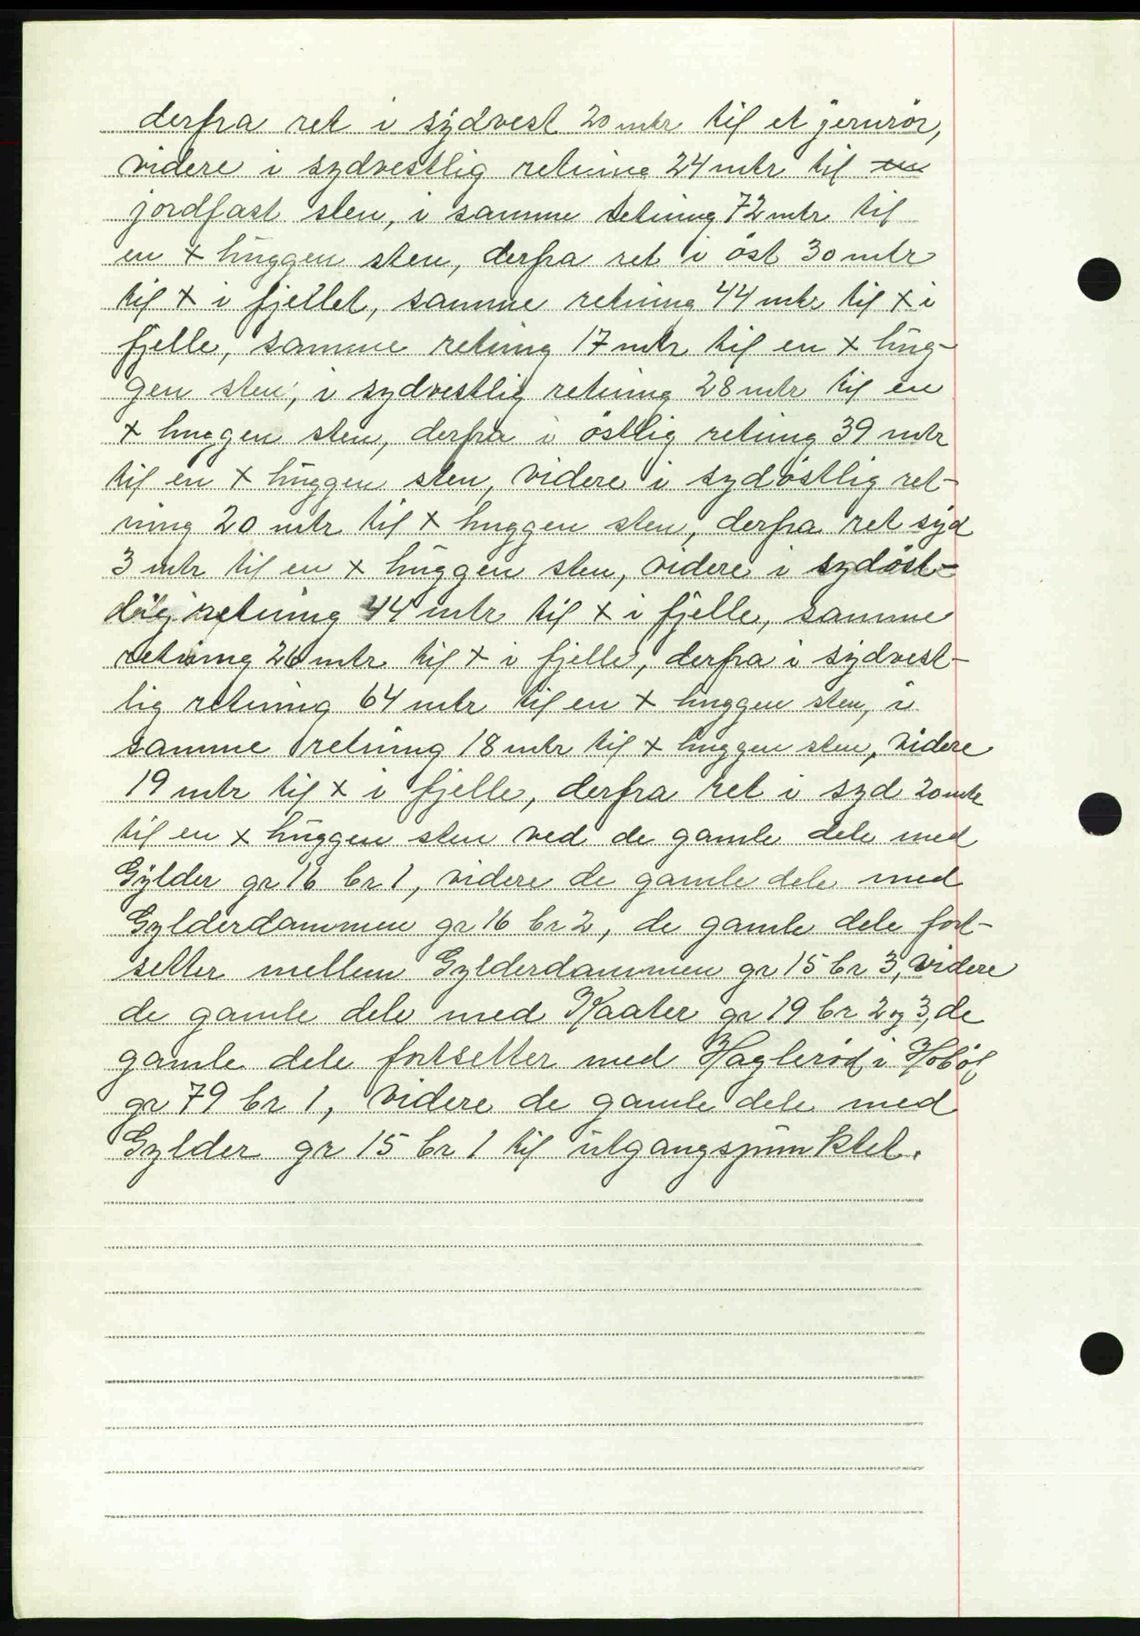 derfra ret i sydvest 20 mtr til et jernrör,
videre i sydvestlig retning 24 mtr til en
jordfast sten, i samme retning 72 mtr til
en x huggen sten, derfra ret i öst 30 mtr
til x i fjellet, samme retning 44 mtr til x i
fjelle, samme retning 17 mtr til en x hug-
gen sten, i sydvestlig retning 28 mtr til en
x huggen sten, derfra i östlig retning 39 mtr
til en x huggen sten, videre i sydöstlig ret-
ning 20 mtr til x huggen sten, derfra ret syd
3 mtr til en x huggen sten, videre i sydöst-
lig retning 44 mtr til x i fjelle, samme
retning 26 mtr til x i fjelle, derfra i sydvest-
lig retning 64 mtr til en x huggen sten, i
samme retning 18 mtr til x huggen sten, videre
19 mtr til x i fjelle, derfra ret i syd 20 mtr
til en x huggen sten ved de gamle dele med
Gylder gr 16 br 1, videre de gamle dele med
Gylderdammen gr 16 br 2, de gamle dele fort-
setter mellem Gylderdammen gr 15 br 3, videre
de gamle dele med Kaater gr 19 br 2 og 3, de
gamle dele fortsetter med Haglerød i Hobøl
gr 79 br 1, videre de gamle dele med
Gylder gr 15 br 1 til utgangspunktet.